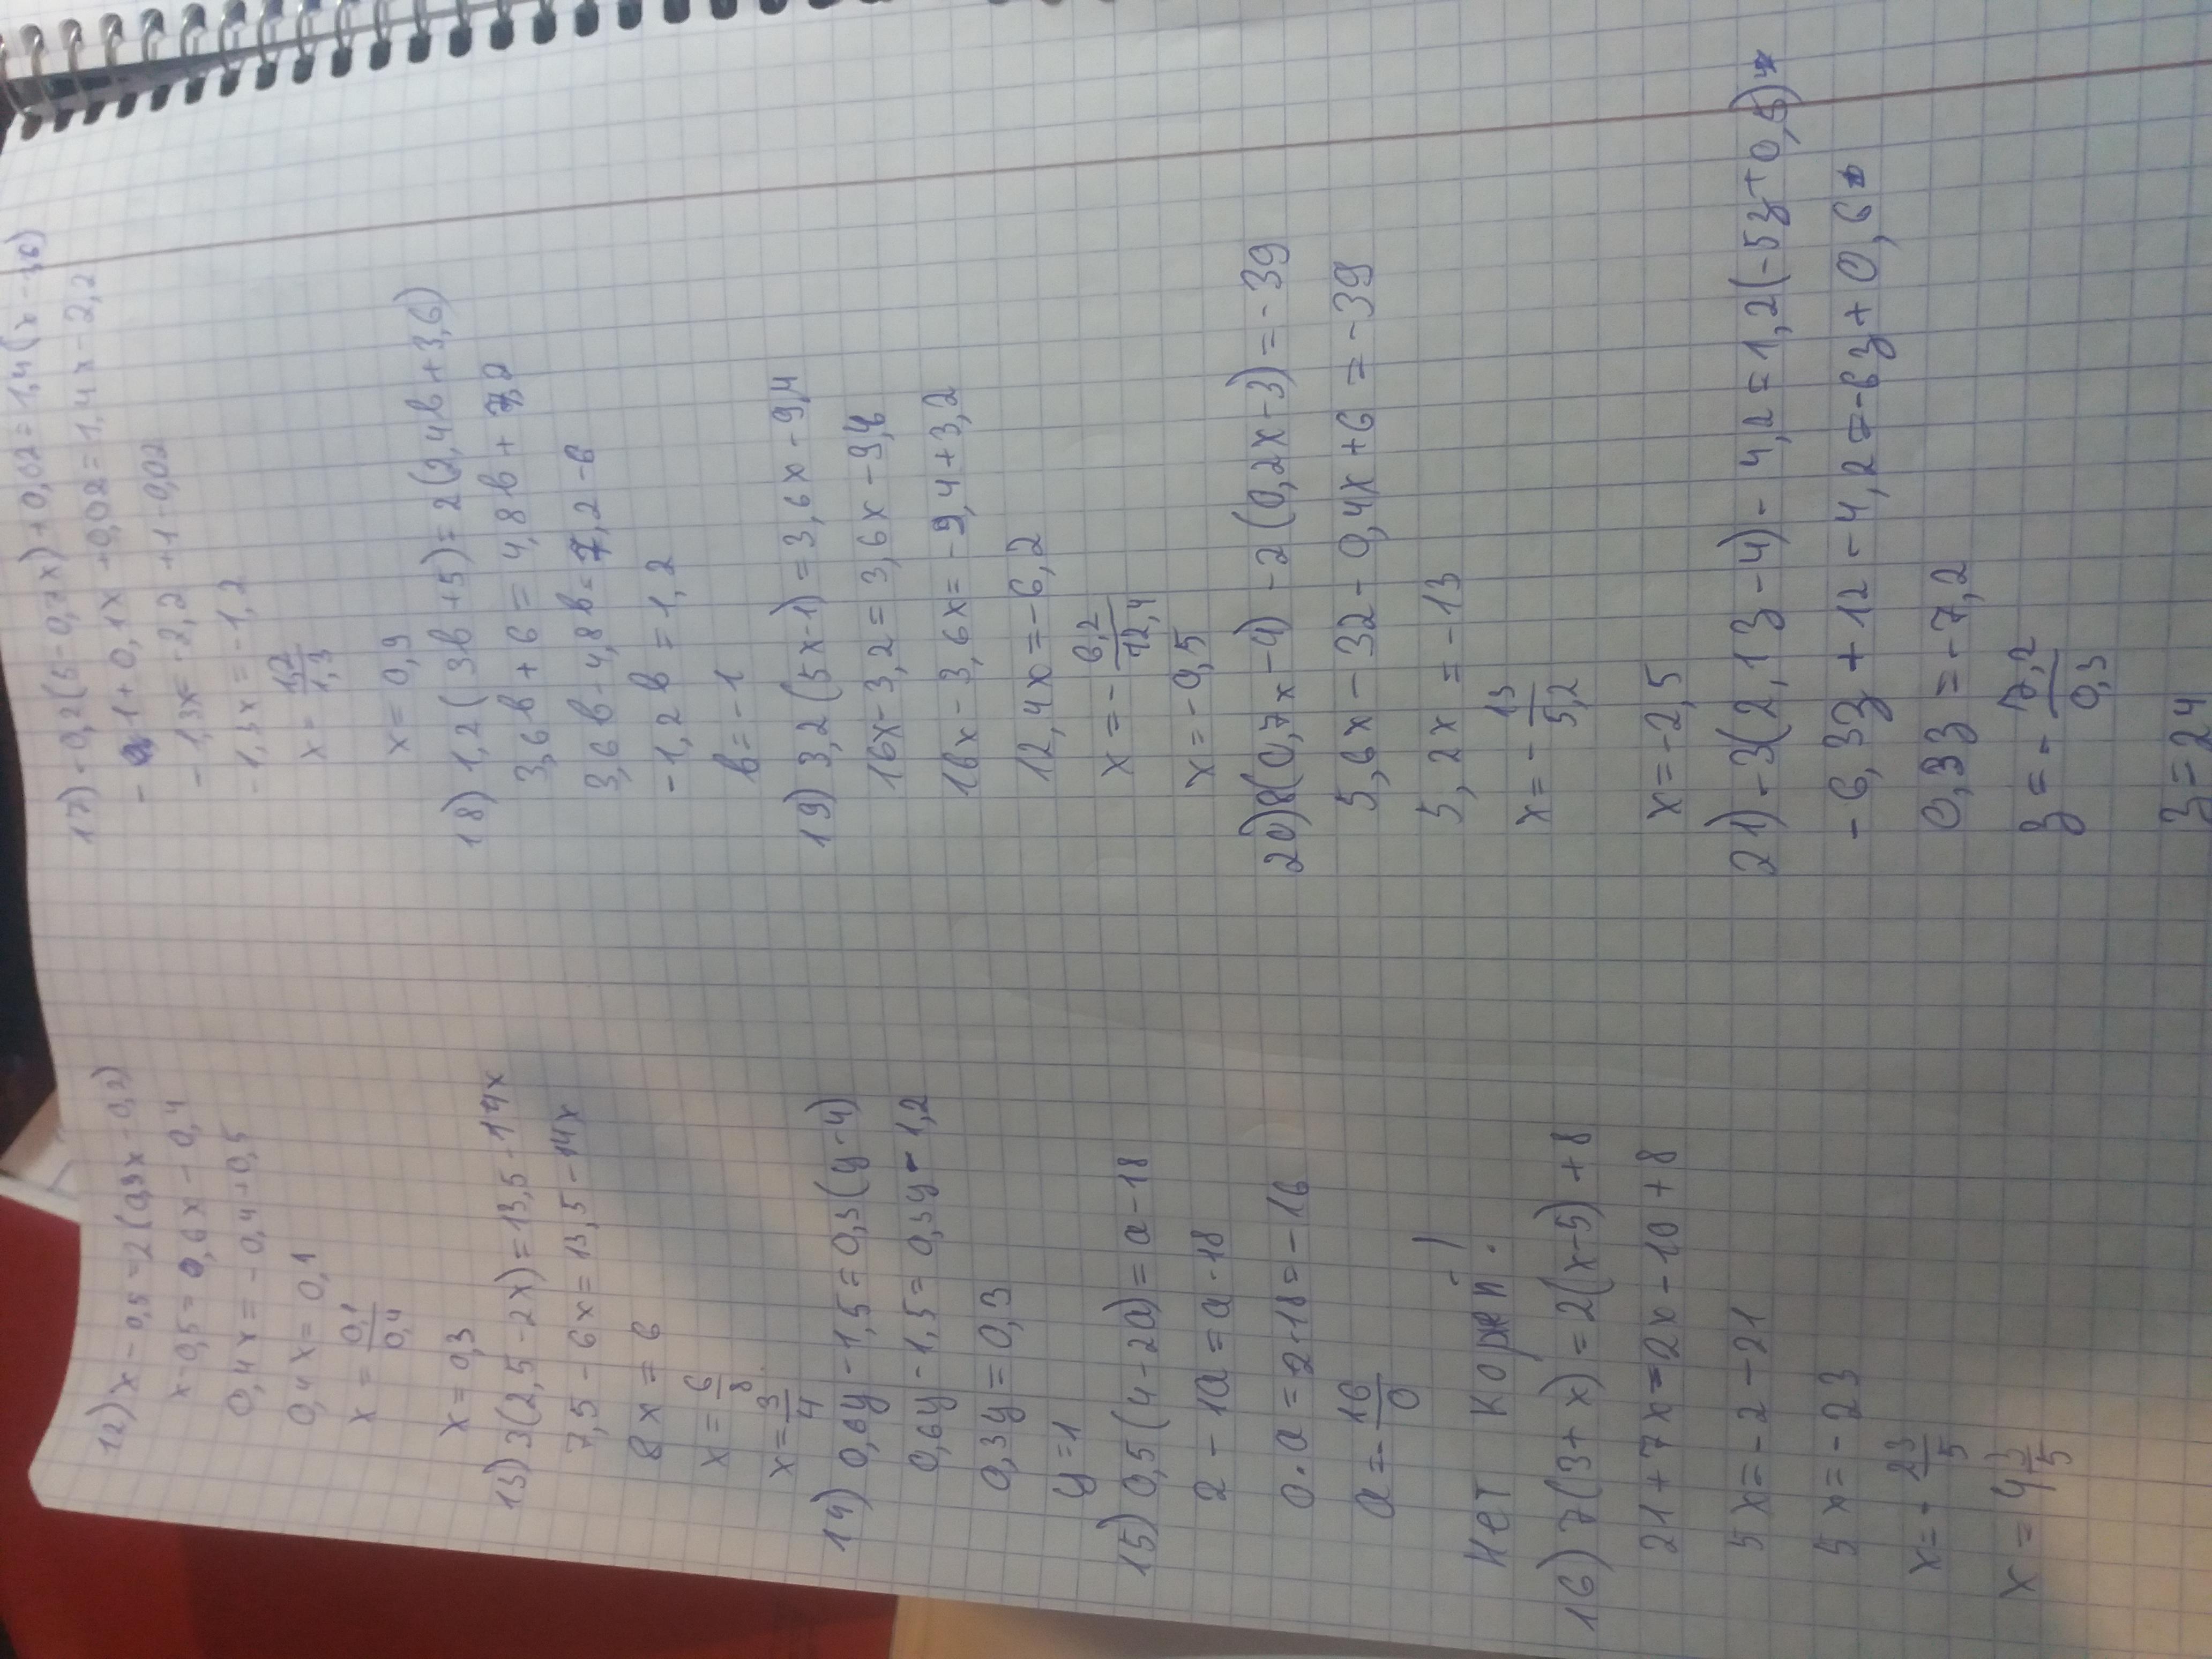 12) x - 0,5 = 2(0,3x - 0,2)
x - 0,5 = 0,6x - 0,4
0,4x = -0,4+0,5
0,4x = 0,1
x = 0,1/0,4
x = 0,3
13) 3(2,5 - 2x) = 13,5 - 14x
7,5 - 6x = 13,5 - 14x
8x = 6
x = 6/8
x = 3/4
14) 0,6y - 1,5 = 0,3(y - 4)
0,6y - 1,5 = 0,3y - 1,2
0,3y = 0,3
y = 1
15) 0,5(4 - 2a) = a - 18
2 - 1a = a - 18
0·a = 2-18 = -16
a = -16/0
Нет корей!
16) 7(3 + x) = 2(x - 5) + 8
21 + 7x = 2x - 10 + 8
5x = -2 - 21
5x = -23
x = -23/5
x = 4 3/5
17) -0,2(5 - 0,7x) + 0,02 = 1,4(x - 1,6)
-1 + 0,1x + 0,02 = 1,4x - 2,2
-1,3x = -2,2 + 1 - 0,02
-1,3x = -1,2
x = 1,2/1,3
x = 0,9
18) 1,2(3в + 5) = 2(2,4в + 3,6)
3,6в + 6 = 4,8в + 7,2
3,6в - 4,8в = 7,2 - 6
-1,2в = 1,2
в = -1
19) 3,2(5x - 1) = 3,6x - 9,4
16x - 3,2 = 3,6x - 9,4
16x - 3,6x = -9,4 + 3,2
12,4x = -6,2
x = -6,2/12,4
x = -0,5
20) 8(0,7x - 4) - 2(0,2x - 3) = -39
5,6x - 32 - 0,4x + 6 = -39
5,2x = -13
x = -13/5,2
x = -2,5
21) -3(2,1z - 4) - 4,2 = 1,2(-5z + 0,5)
-6,3z + 12 - 4,2 = -6z + 0,6
0,3z = -7,2
z = -7,2/0,3
z = 24